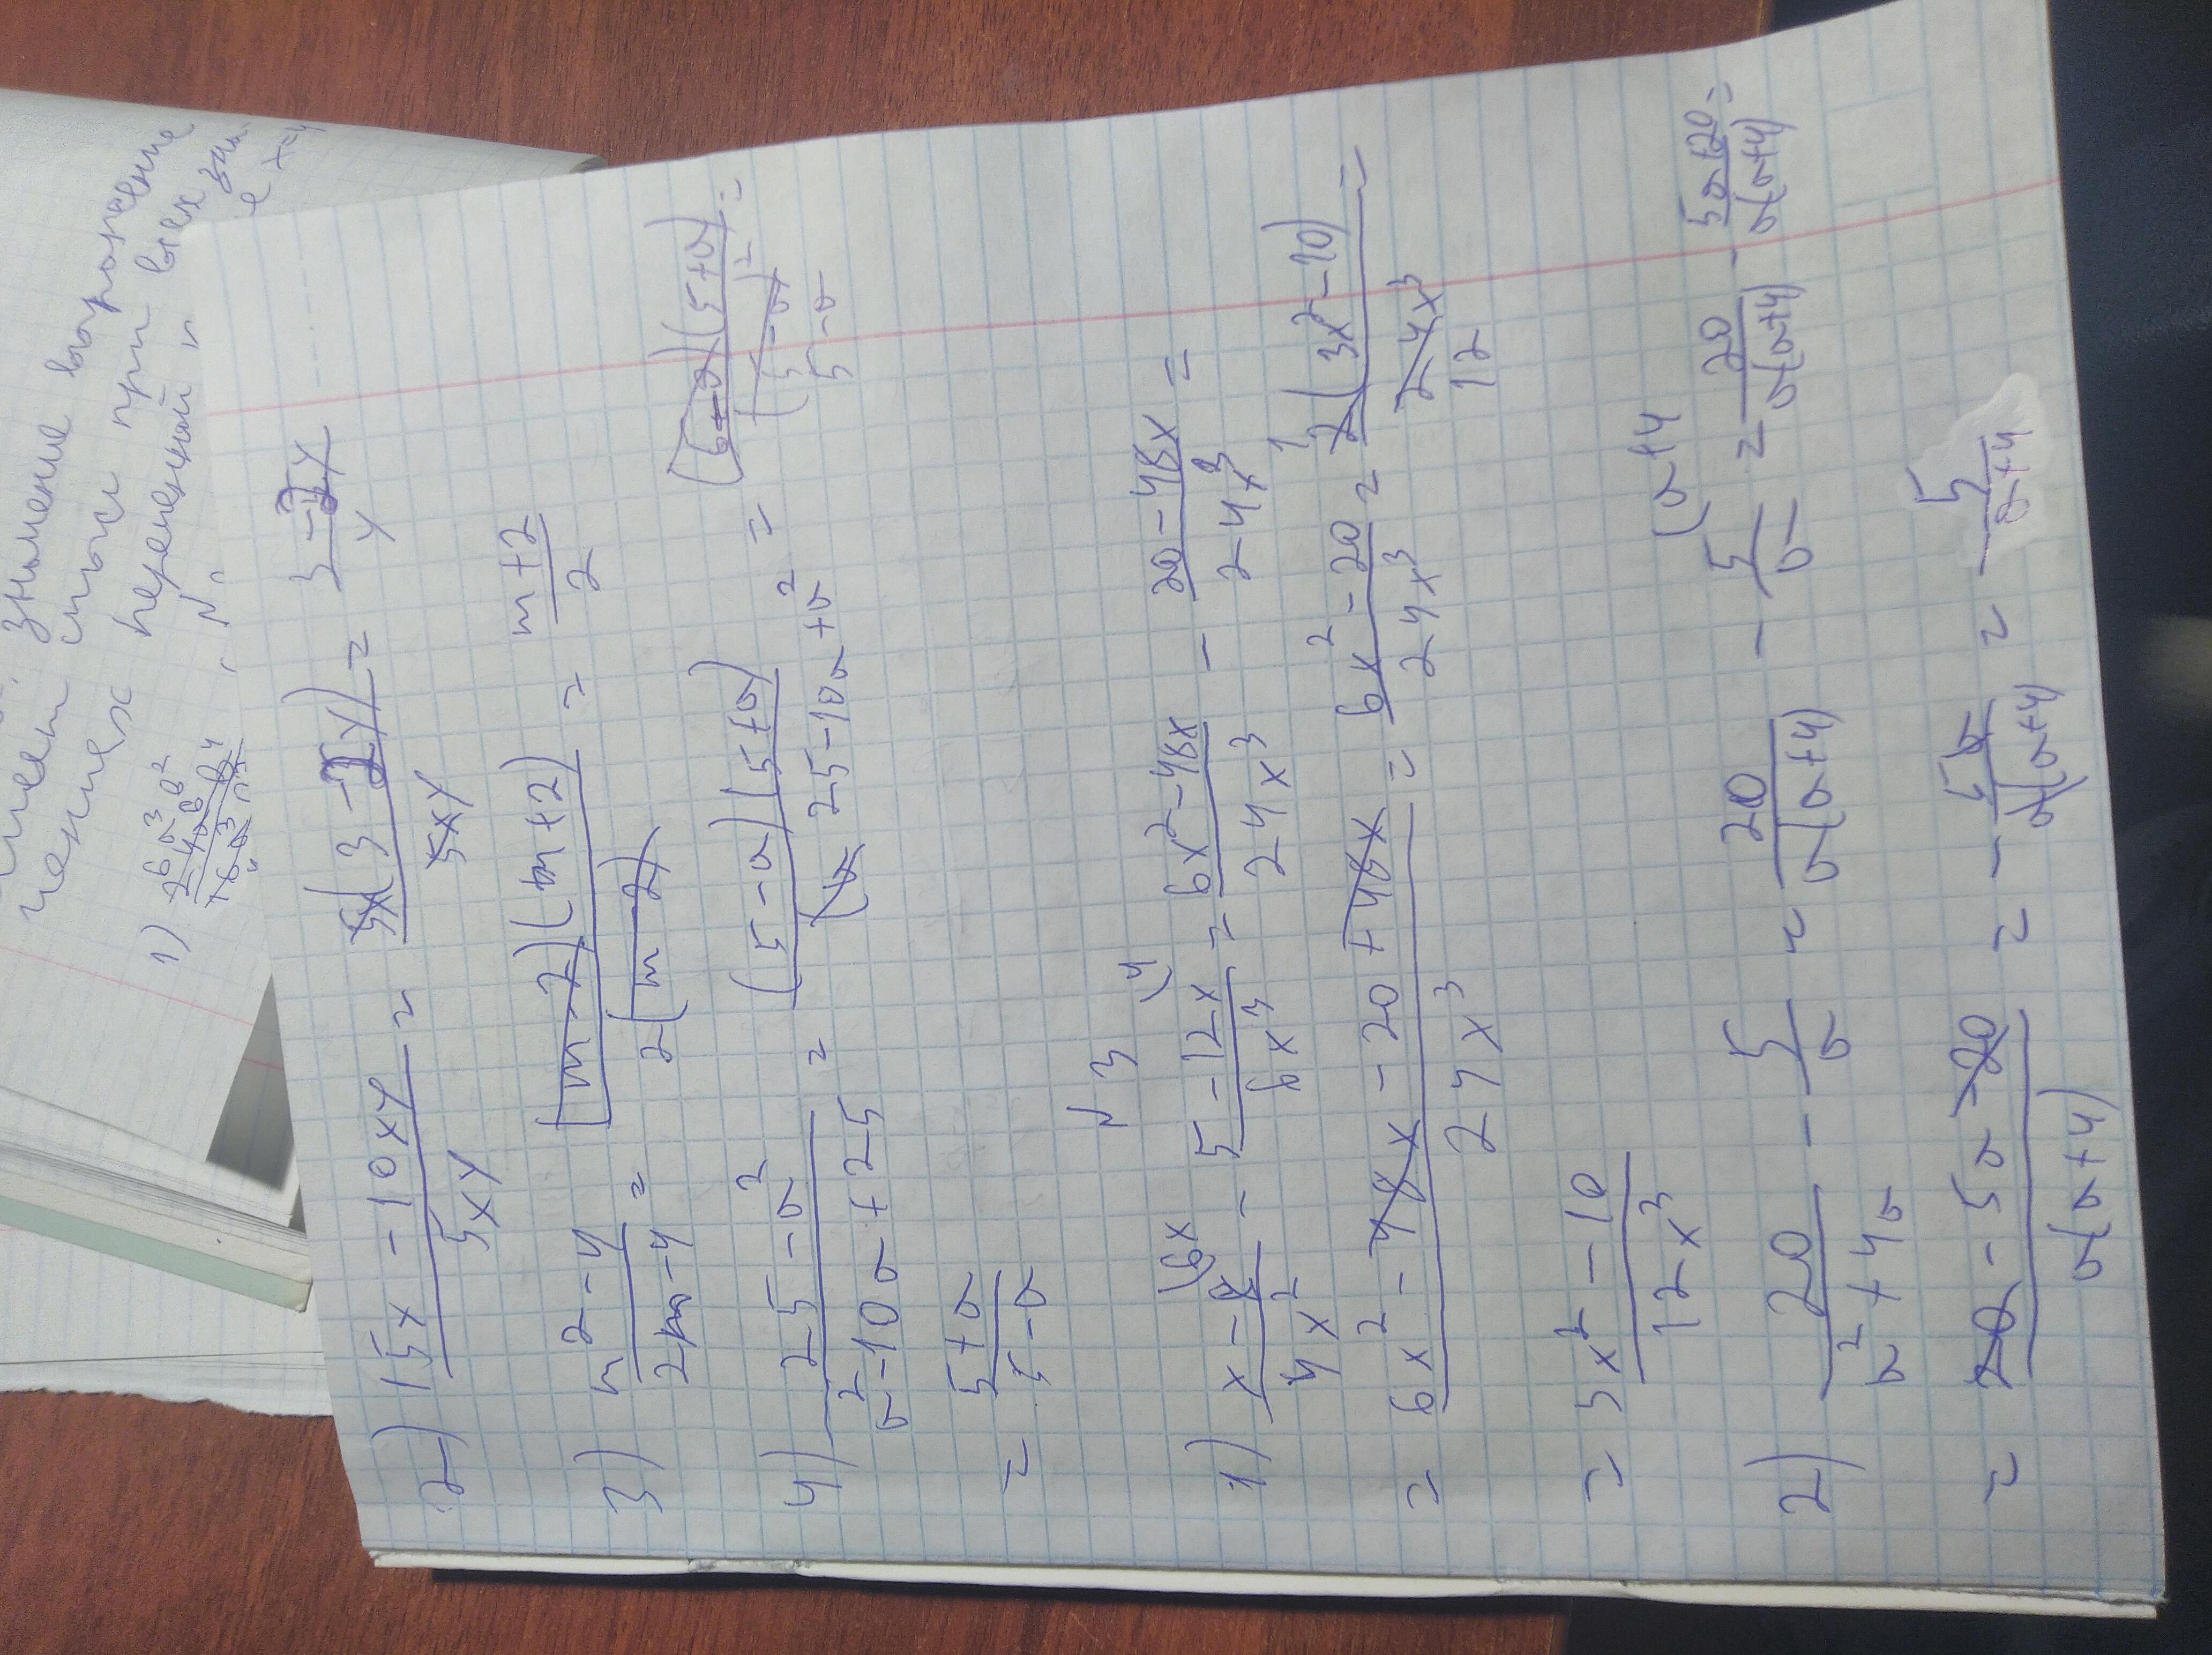 значение выражение
при всех зна-
чениях переменной и
1)
2) (15x - 10xy)/(5xy) = 5x(3 - 2y)/(5xy) = (3 - 2y)/y
3) (m² - 4)/(2m - 4) = (m - 2)(m + 2)/(2(m - 2)) = (m + 2)/2
4) (25 - a²)/(a² - 10a + 25) = (5 - a)(5 + a)/(25 - 10a + a²) = (5 - a)(5 + a)/(5 - a)² =
5 - a
= (5 + a)/(5 - a)
N3
1) (x - 8)/(4x²) (6x - (5 - 12x)/(6x³) (4 = (6x² - 48x)/(24x³) - (20 - 48x)/(24x³) =
= (6x² - 48x - 20 + 48x)/(24x³) = (6x² - 20)/(24x³) = 2(3x² - 10)/(24x³) =
1 12
= (3x² - 10)/(12x³)
2) 20/(a² + 4a) - 5/a = 20/(a(a+4)) - 5/a (a+4 = 20/(a(a+4)) - (5a+20)/(a(a+4)) =
= (20 - 5a - 20)/(a(a+4)) = - 5a/(a(a+4)) = - 5/(a+4)